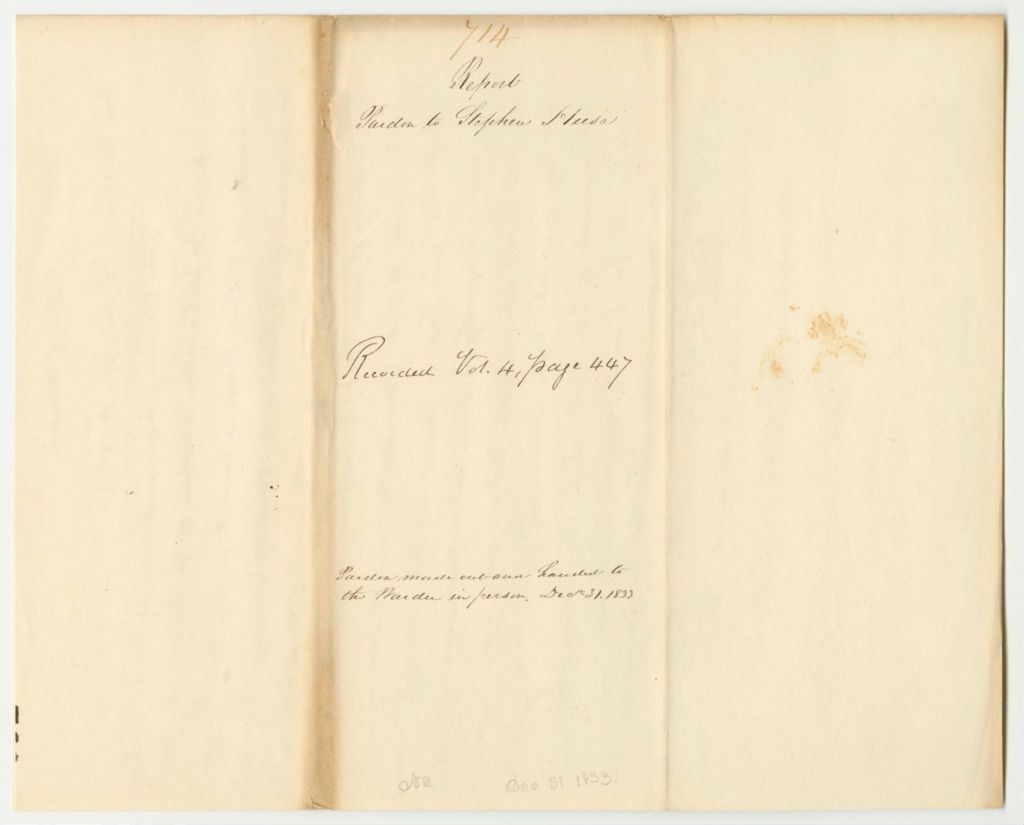 714
Report
Pardon to Stephen
Recorded Vol. 4, page 447
Pardon made out and handed to
the Warden in person. Decr. 31. 1833
Dec 31 1833.